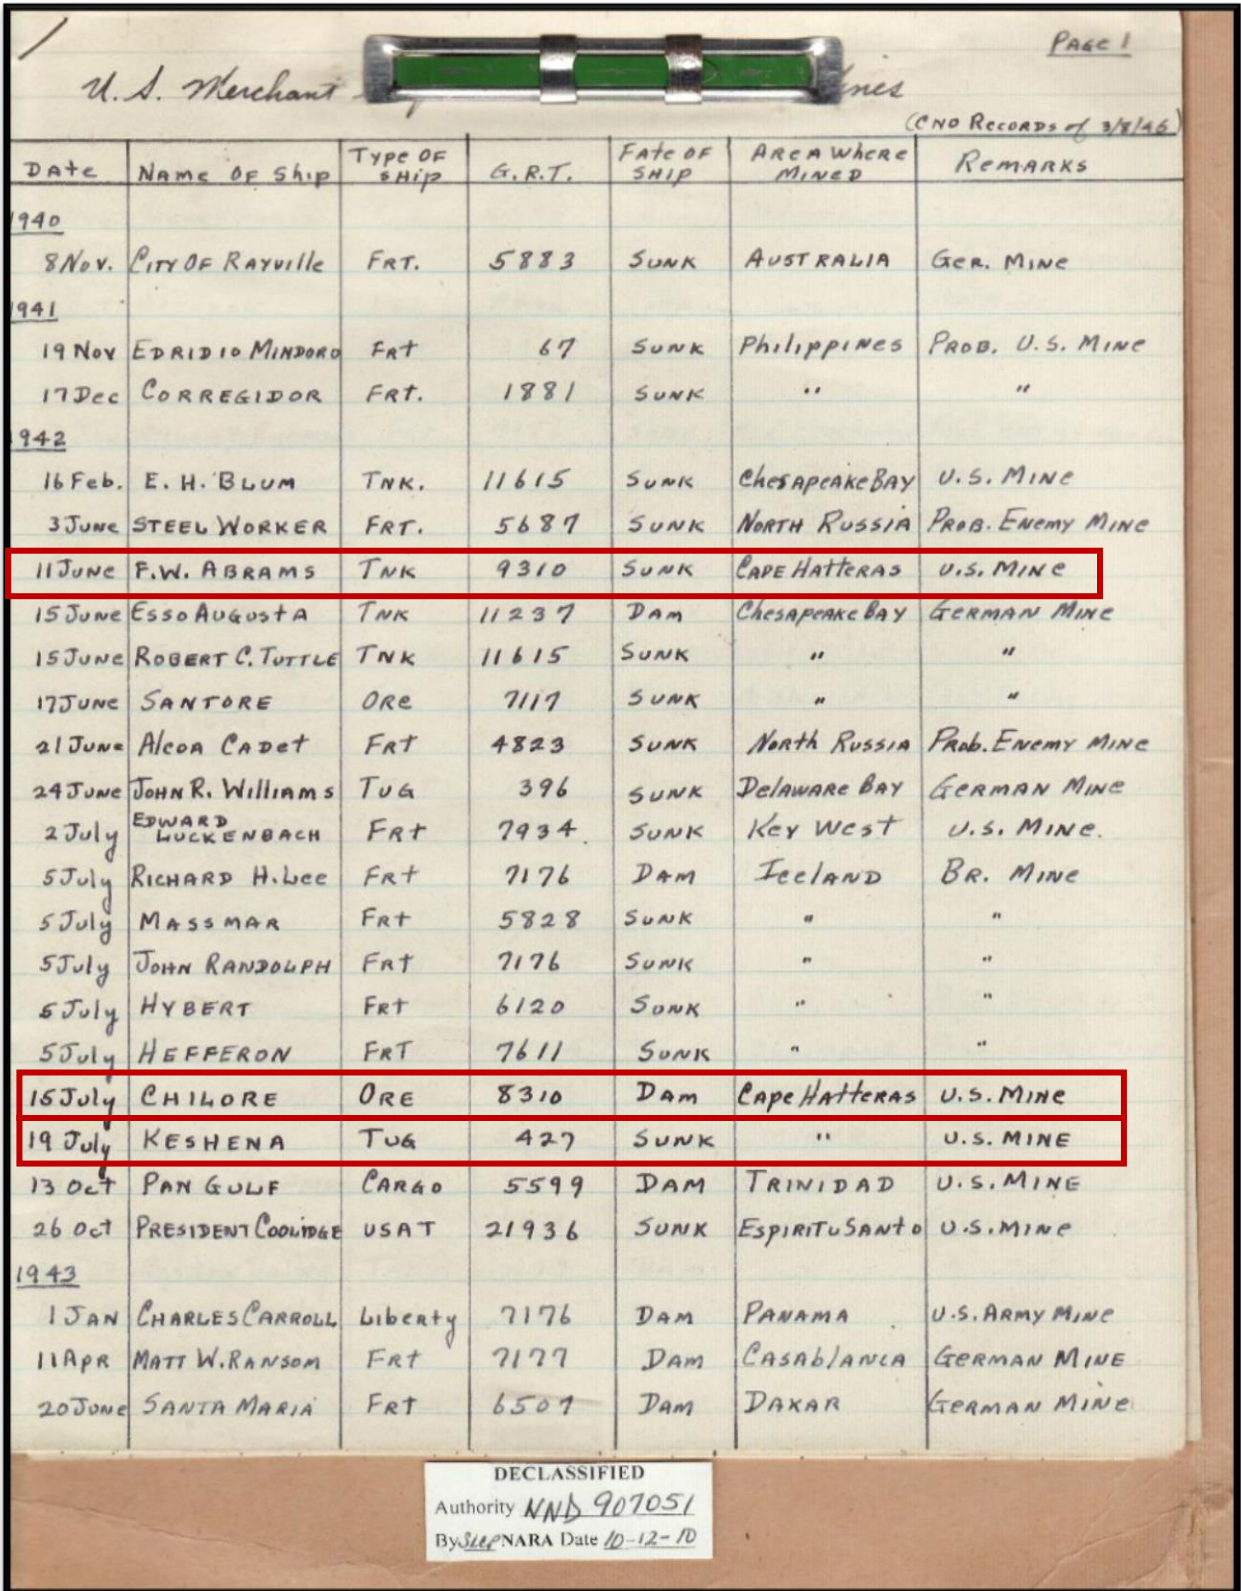 PAGE 1
U. S. Merchant ines
(CNO RECORDS of 3/8/46)
DATE NAME OF SHIP TYPE OF SHIP G.R.T. FATE OF SHIP AREA WHERE MINED REMARKS
1940
8 Nov. CITY OF RAYVILLE FRT. 5883 SUNK AUSTRALIA GER. MINE
1941
19 Nov EDRIDIO MINDORO FRT 67 SUNK PHILIPPINES PROB. U.S. MINE
17 Dec CORREGIDOR FRT. 1881 SUNK " "
1942
16 Feb. E. H. BLUM TNK. 11615 SUNK CHESAPEAKE BAY U.S. MINE
3 JUNE STEEL WORKER FRT. 5687 SUNK NORTH RUSSIA PROB. ENEMY MINE
11 JUNE F.W. ABRAMS TNK 9310 SUNK CAPE HATTERAS U.S. MINE
15 JUNE ESSO AUGUSTA TNK 11237 DAM CHESAPEAKE BAY GERMAN MINE
15 JUNE ROBERT C. TUTTLE TNK 11615 SUNK " "
17 JUNE SANTORE ORE 7117 SUNK " "
21 JUNE ALCOA CADET FRT 4823 SUNK NORTH RUSSIA PROB. ENEMY MINE
24 JUNE JOHN R. WILLIAMS TUG 396 SUNK DELAWARE BAY GERMAN MINE
2 July EDWARD LUCKENBACH FRT 7934. SUNK KEY WEST U.S. MINE.
5 July RICHARD H. LEE FRT 7176 DAM ICELAND BR. MINE
5 July MASSMAR FRT 5828 SUNK " "
5 July JOHN RANDOLPH FRT 7176 SUNK " "
5 July HYBERT FRT 6120 SUNK " "
5 July HEFFERON FRT 7611 SUNK " "
15 July CHILORE ORE 8310 DAM CAPE HATTERAS U.S. MINE
19 July KESHENA TUG 427 SUNK " U.S. MINE
13 Oct PAN GULF CARGO 5599 DAM TRINIDAD U.S. MINE
26 Oct PRESIDENT COOLIDGE USAT 21936 SUNK ESPIRITU SANTO U.S. MINE
1943
1 JAN CHARLES CARROLL Liberty 7176 DAM PANAMA U.S. ARMY MINE
11 Apr MATT W. RANSOM FRT 7177 DAM CASABLANCA GERMAN MINE
20 JUNE SANTA MARIA FRT 6507 DAM DAKAR GERMAN MINE
DECLASSIFIED
Authority NND 907051
By NARA Date 10-12-10